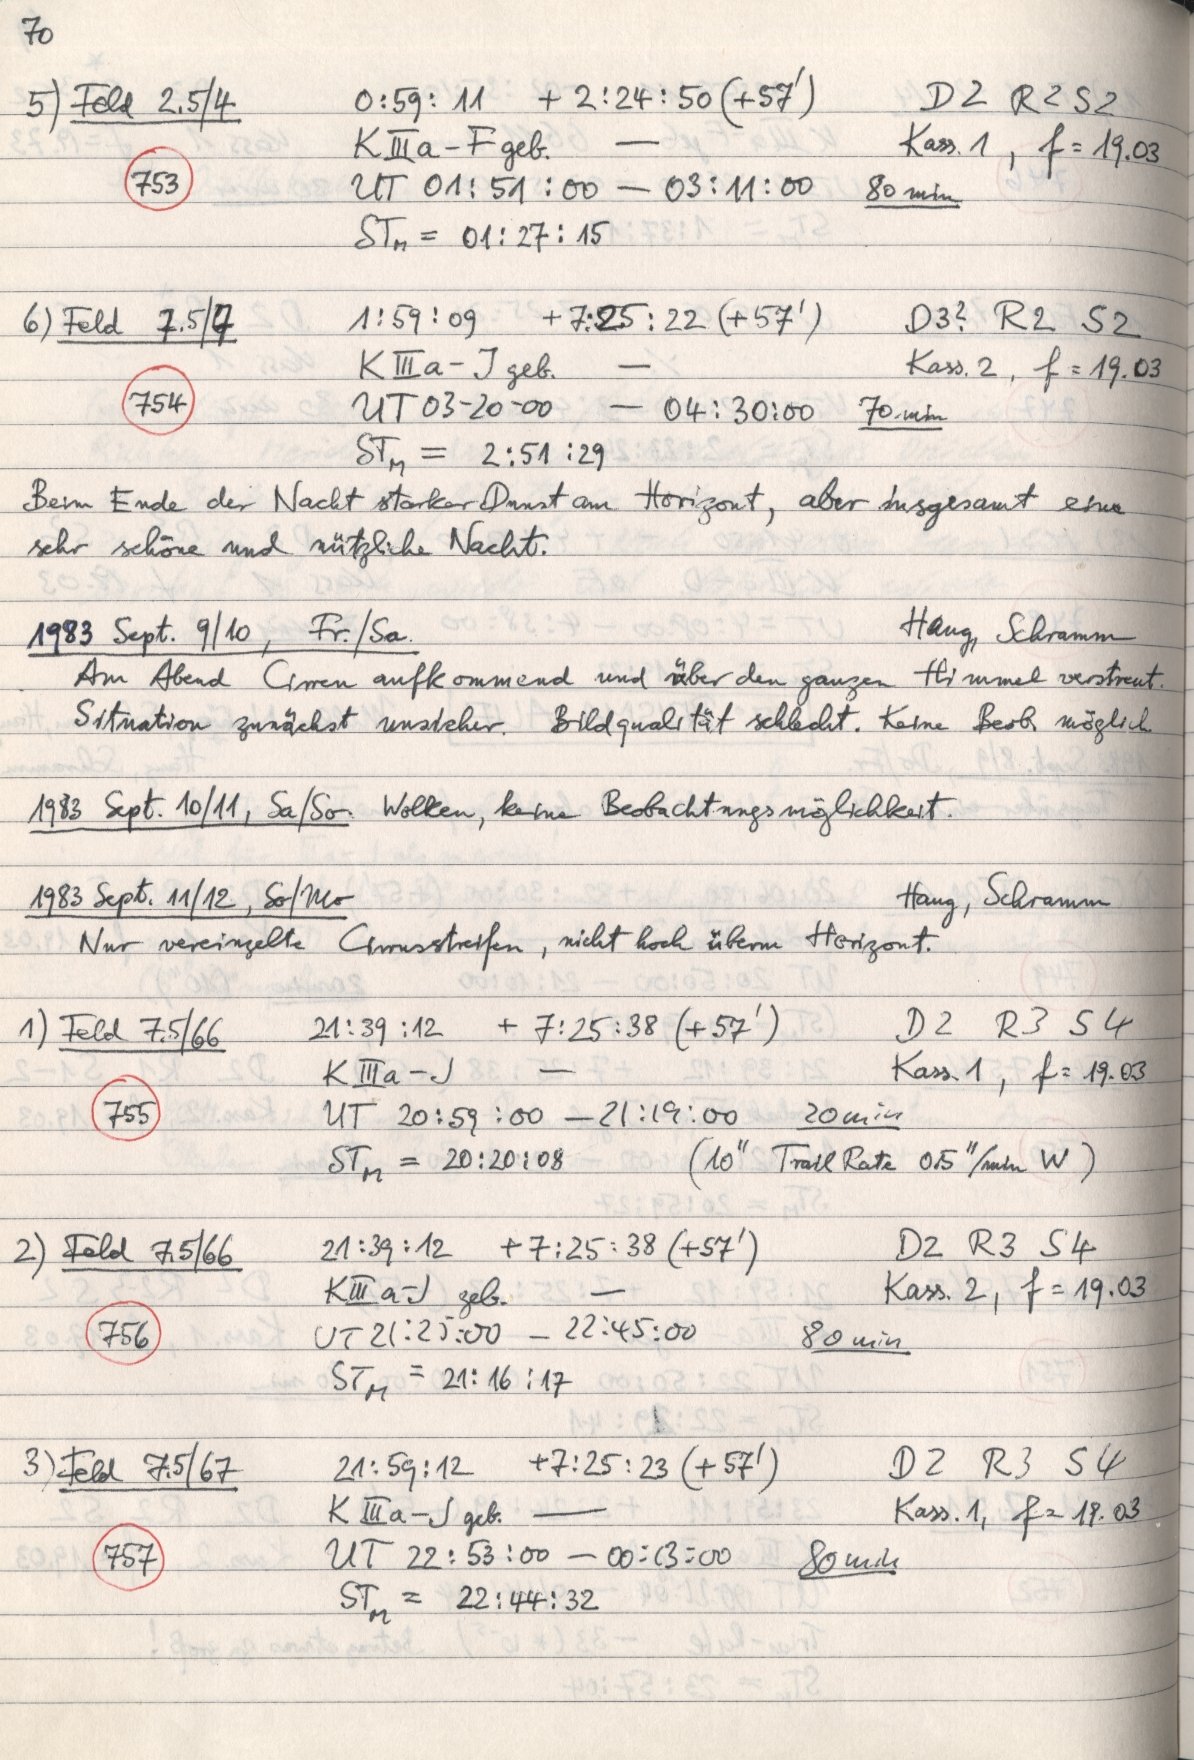 70
5) Feld 2.5/4 0:59:11 + 2:24:50 (+57') D2 R2 S2
K IIIa-F geb. — Kass. 1, f = 19.03
753 UT 01:51:00 — 03:11:00 80 min
ST_M = 01:27:15
6) Feld 7.5/7 1:59:09 +7:25:22 (+57') D3? R2 S2
K IIIa-J geb. — Kass. 2, f = 19.03
754 UT 03-20-00 — 04:30:00 70 min
ST_M = 2:51:29
Beim Ende der Nacht starker Dunst am Horizont, aber insgesamt eine
sehr schöne und nützliche Nacht.
1983 Sept. 9/10, Fr./Sa. Haug, Schramm
Am Abend Cirren aufkommend und über den ganzen Himmel verstreut.
Situation zunächst unsicher. Bildqualität schlecht. Keine Beob. möglich
1983 Sept. 10/11, Sa/So. Wolken, keine Beobachtungsmöglichkeit.
1983 Sept. 11/12, So/Mo Haug, Schramm
Nur vereinzelte Cirrusstreifen, nicht hoch überm Horizont.
1) Feld 7.5/66 21:39:12 + 7:25:38 (+57') D2 R3 S4
K IIIa-J — Kass. 1, f = 19.03
755 UT 20:59:00 — 21:19:00 20 min
ST_M = 20:20:08 (10" Trail Rate 0.5"/min W)
2) Feld 7.5/66 21:39:12 +7:25:38 (+57') D2 R3 S4
K IIIa-J geb. — Kass. 2, f = 19.03
756 UT 21:25:00 — 22:45:00 80 min
ST_M = 21:16:17
3) Feld 7.5/67 21:59:12 +7:25:23 (+57') D2 R3 S4
K IIIa-J geb. — Kass. 1, f = 19.03
757 UT 22:53:00 — 00:13:00 80 min
ST_M = 22:44:32